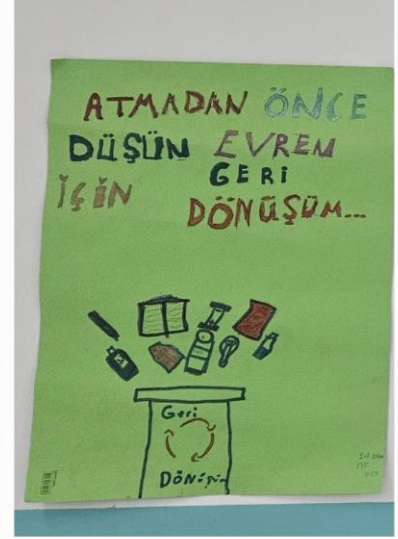 ATMADAN ÖNCE
DÜŞÜN EVREN
İÇİN GERİ
DÖNÜŞÜM...
Geri
Dönüşüm